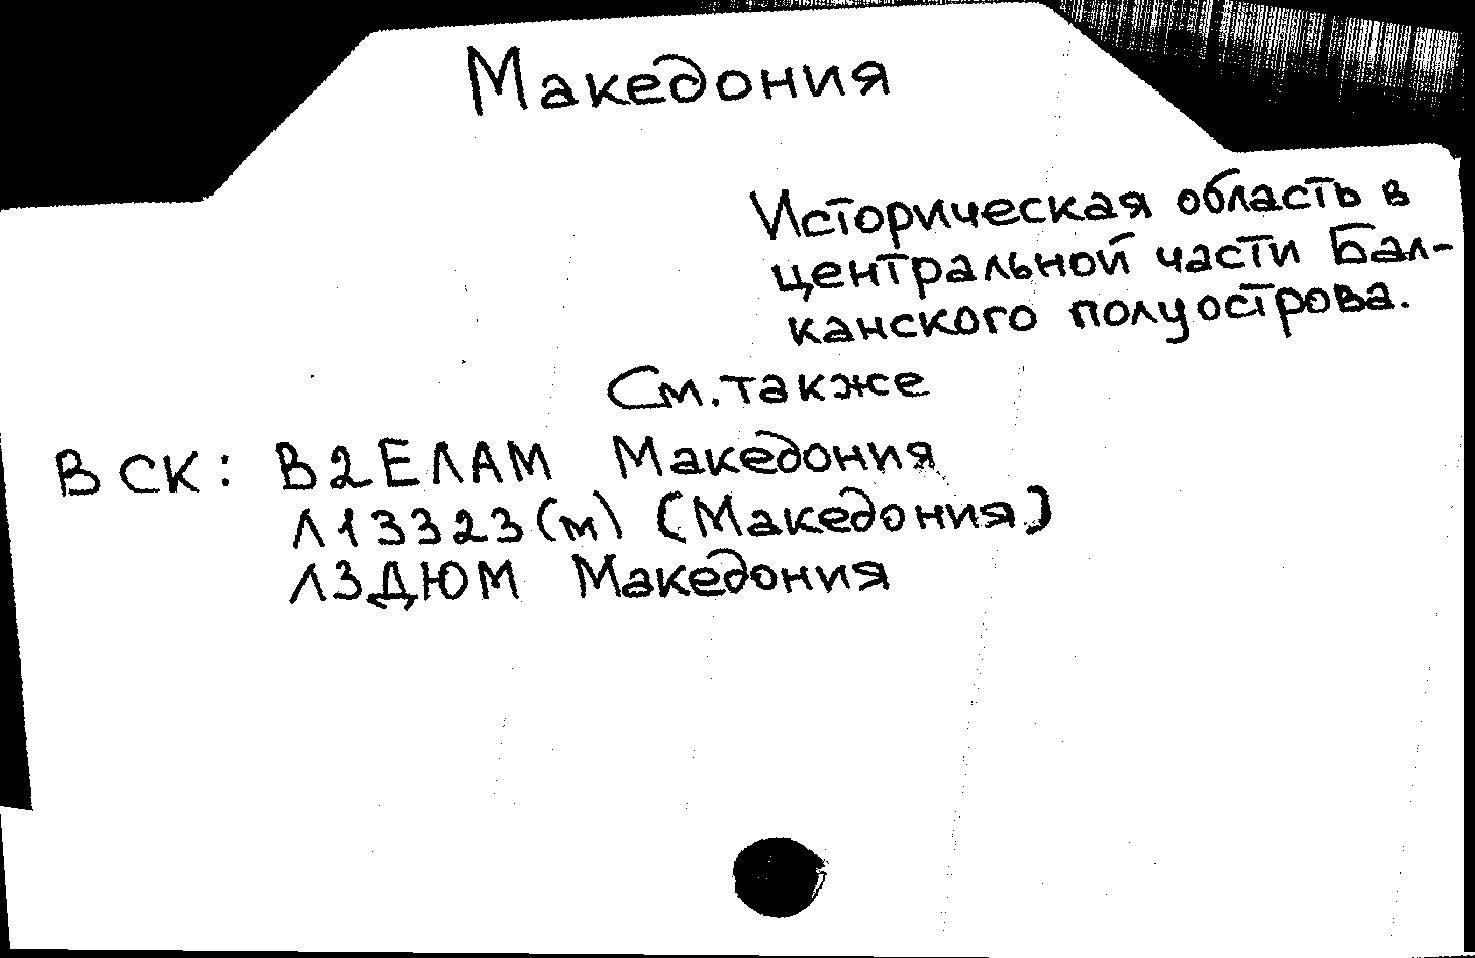 Македония
Историческая область в
центральной части Бал-
канского полуострова.
См. также
В СК: В2ЕЛАМ Македония
Л13323(м) (Македония)
Л3ДЮМ Македония